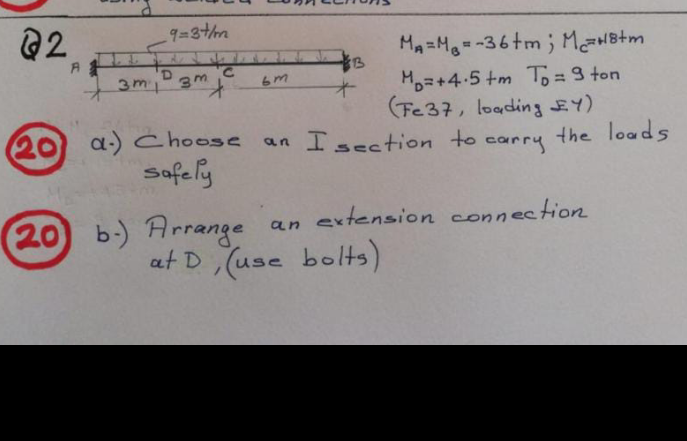 Q2
q=3t/m
A D C B
3m 3m 6m
M_A=M_B=-36tm; M_C=+18tm
M_D=+4.5tm T_D=9 ton
(Fe37, loading EY)
20 a-) Choose an I section to carry the loads
safely
20 b-) Arrange an extension connection
at D, (use bolts)